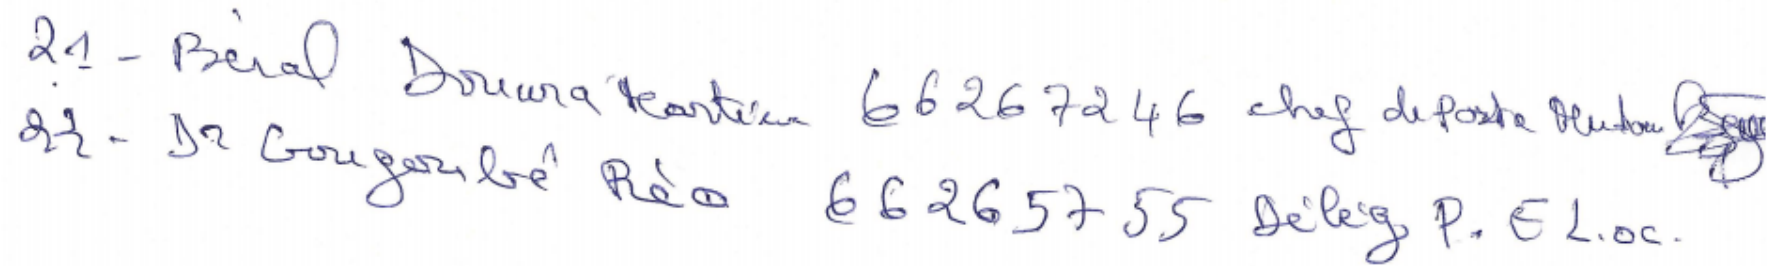 21 - Béral Doumra Martin 66267246 chef de poste
22 - Dr Gougoubé Réo 66265755 Délég P. E L.oc.